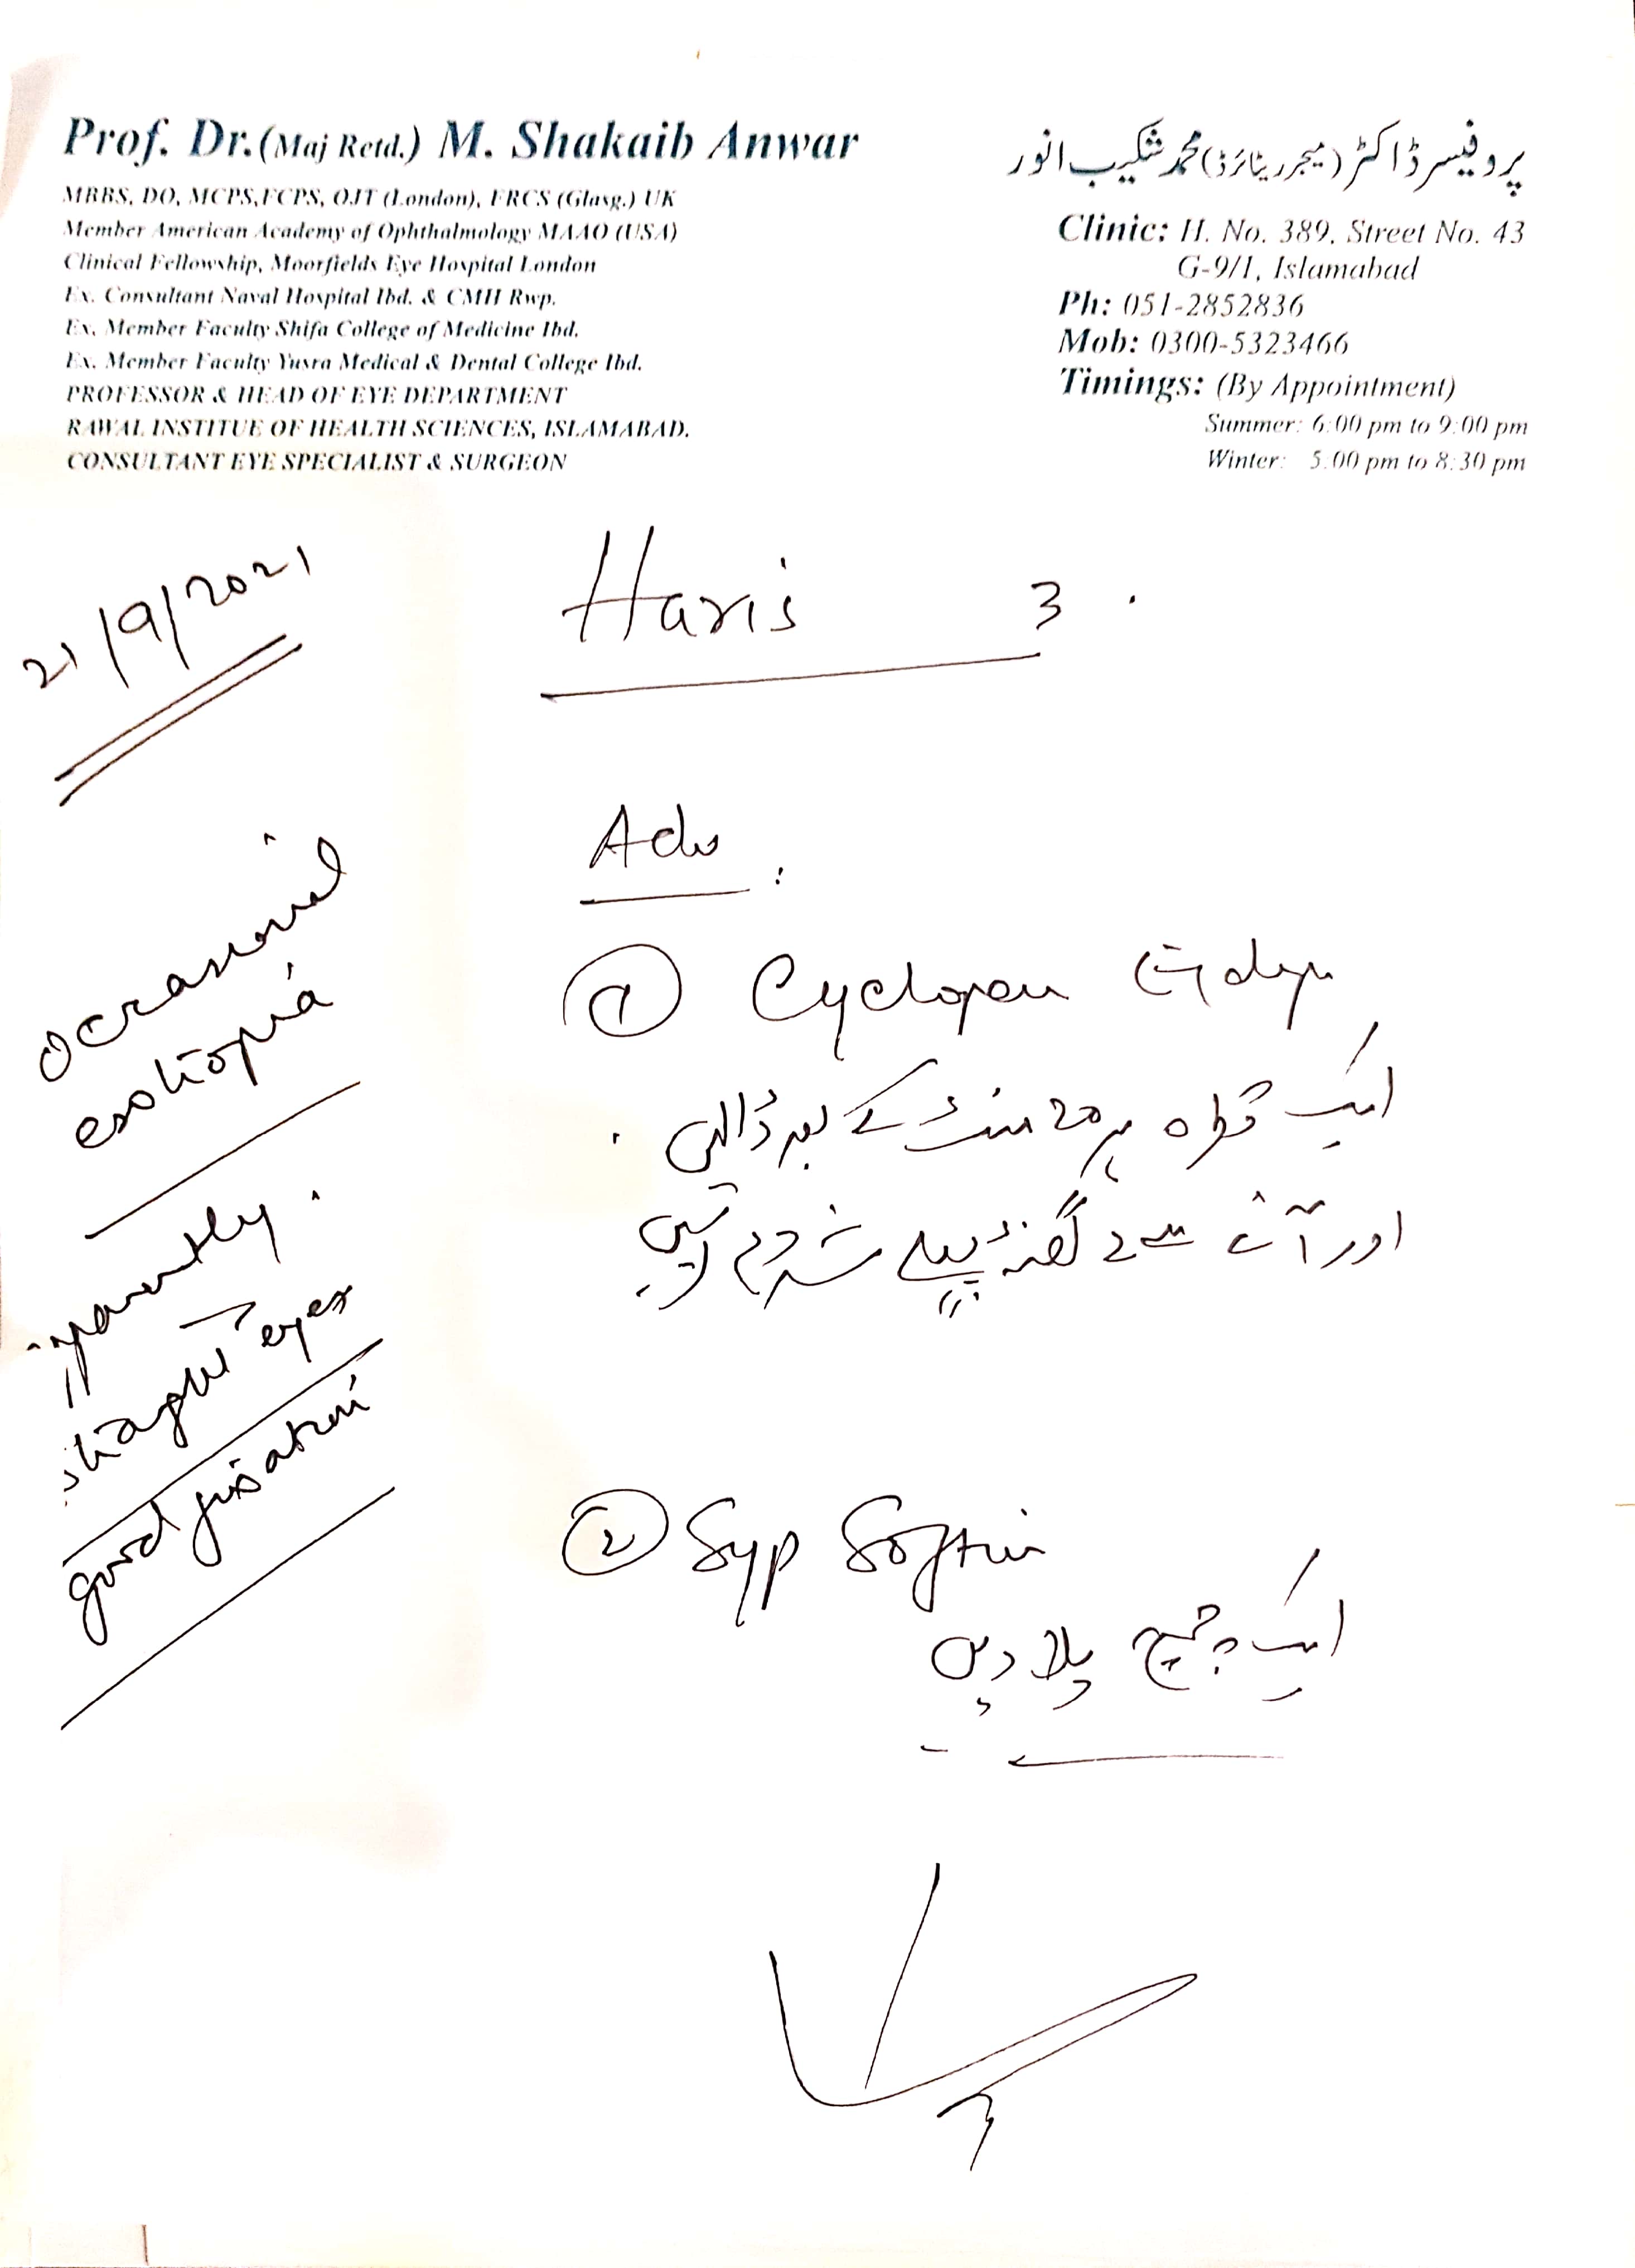 Prof. Dr.(Maj Retd.) M. Shakaib Anwar
MBBS, DO, MCPS,FCPS, OJT (London), FRCS (Glasg.) UK
Member American Academy of Ophthalmology MAAO (USA)
Clinical Fellowship, Moorfields Eye Hospital London
Ex. Consultant Naval Hospital Ibd. & CMH Rwp.
Ex. Member Faculty Shifa College of Medicine Ibd.
Ex. Member Faculty Yusra Medical & Dental College Ibd.
PROFESSOR & HEAD OF EYE DEPARTMENT
RAWAL INSTITUE OF HEALTH SCIENCES, ISLAMABAD.
CONSULTANT EYE SPECIALIST & SURGEON
پروفیسر ڈاکٹر (میجر ریٹائرڈ) محمد شکیب انور
Clinic: H. No. 389, Street No. 43
G-9/1, Islamabad
Ph: 051-2852836
Mob: 0300-5323466
Timings: (By Appointment)
Summer: 6:00 pm to 9:00 pm
Winter: 5.00 pm to 8:30 pm
21/9/2021
Haris 3
occasional
esotropia
straight eyes
good fixation
Adv:
① Cyclopen
ایک قطرہ ہر 20 منٹ کے بعد ڈالیں
اور آنے سے 2 گھنٹہ پہلے شروع کریں
② Syp Softin
ایک چمچ پلا دیں